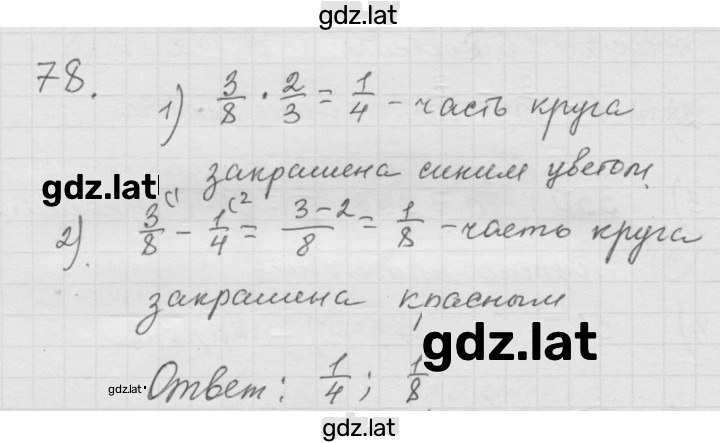 gdz.lat
78.
1) 3/8 · 2/3 = 1/4 - часть круга
закрашена синим цветом
gdz.lat
2) 3/8 (1 - 1/4 (2 = 3-2/8 = 1/8 - часть круга
закрашена красным
gdz.lat
gdz.lat
Ответ: 1/4; 1/8
gdz.lat